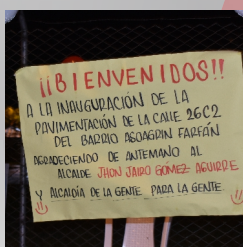 ¡¡BIENVENIDOS!!
A LA INAUGURACIÓN DE LA
PAVIMENTACIÓN DE LA CALLE 26C2
DEL BARRIO ASOAGRIN FARFÁN
AGRADECIENDO DE ANTEMANO AL
ALCALDE JHON JAIRO GÓMEZ AGUIRRE
Y ALCALDÍA DE LA GENTE PARA LA GENTE